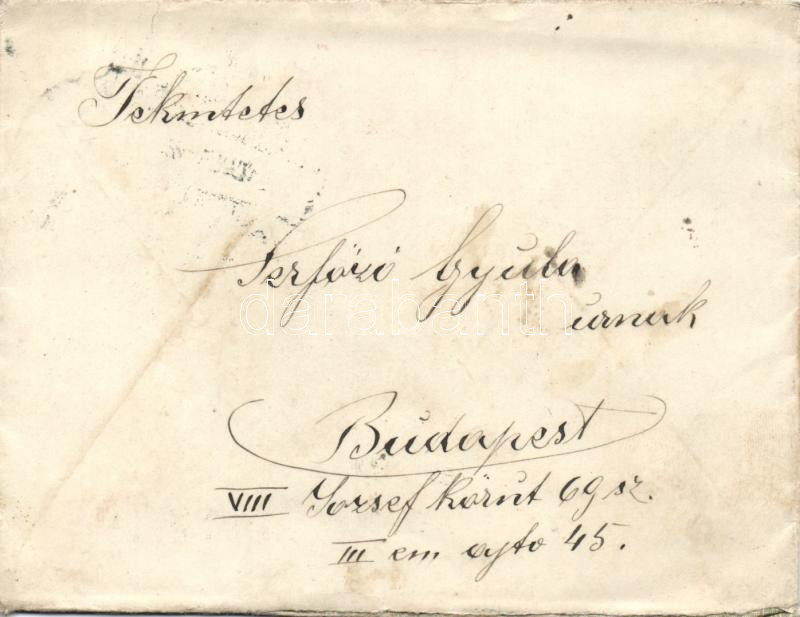 Tekintetes
Serfőző Gyula
urnak
Budapest
VIII Jozsef körut 69 sz.
III em ajto 45.
darabanth